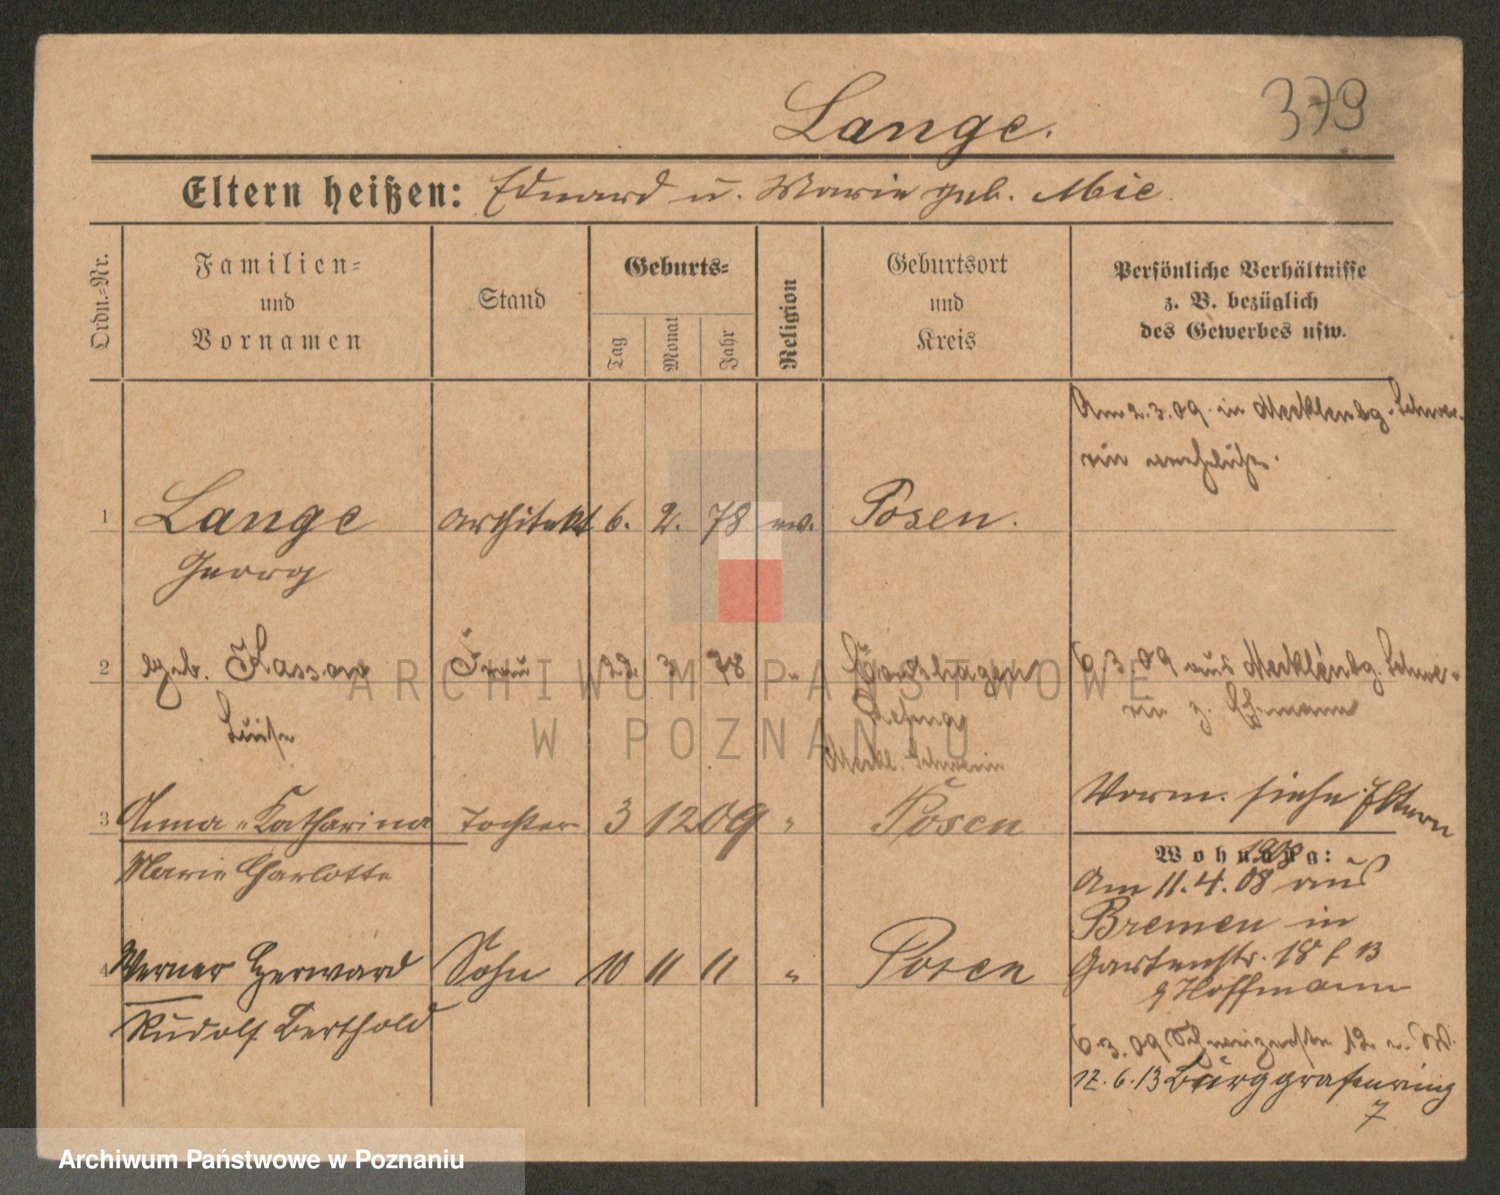 Lange.
379
Eltern heißen: Eduard u. Marie geb. Mie
Ordn.=Nr.
Familien=
und
Vornamen
Stand
Geburts=
Tag
Monat
Jahr
Religion
Geburtsort
und
Kreis
Persönliche Verhältnisse
z. B. bezüglich
des Gewerbes usw.
Am 2.3.09 in Mecklenbg. Schwe-
rin
1 Lange Architekt 6. 2. 78 ev. Posen.
Georg
2 geb. Kassow Frau 3 78 "
Luise
Meckl. Schwerin
6.3.09 aus Mecklenbg. Schwe-
rin z. Ehemann
3 Anna Katharina Tochter 3 12 09 " Posen
Marie Charlotte
Vorm. siehe Eltern
Wohnung:
1908
Am 11.4.08 aus
Bremen in
Gartenstr. 18 b
Hoffmann
4 Werner Herward Sohn 10 11 11 " Posen
Rudolf Berthold
6.3.09 12
17.6.13 Burggrafenring
7
ARCHIWUM PAŃSTWOWE
W POZNANIU
Archiwum Państwowe w Poznaniu